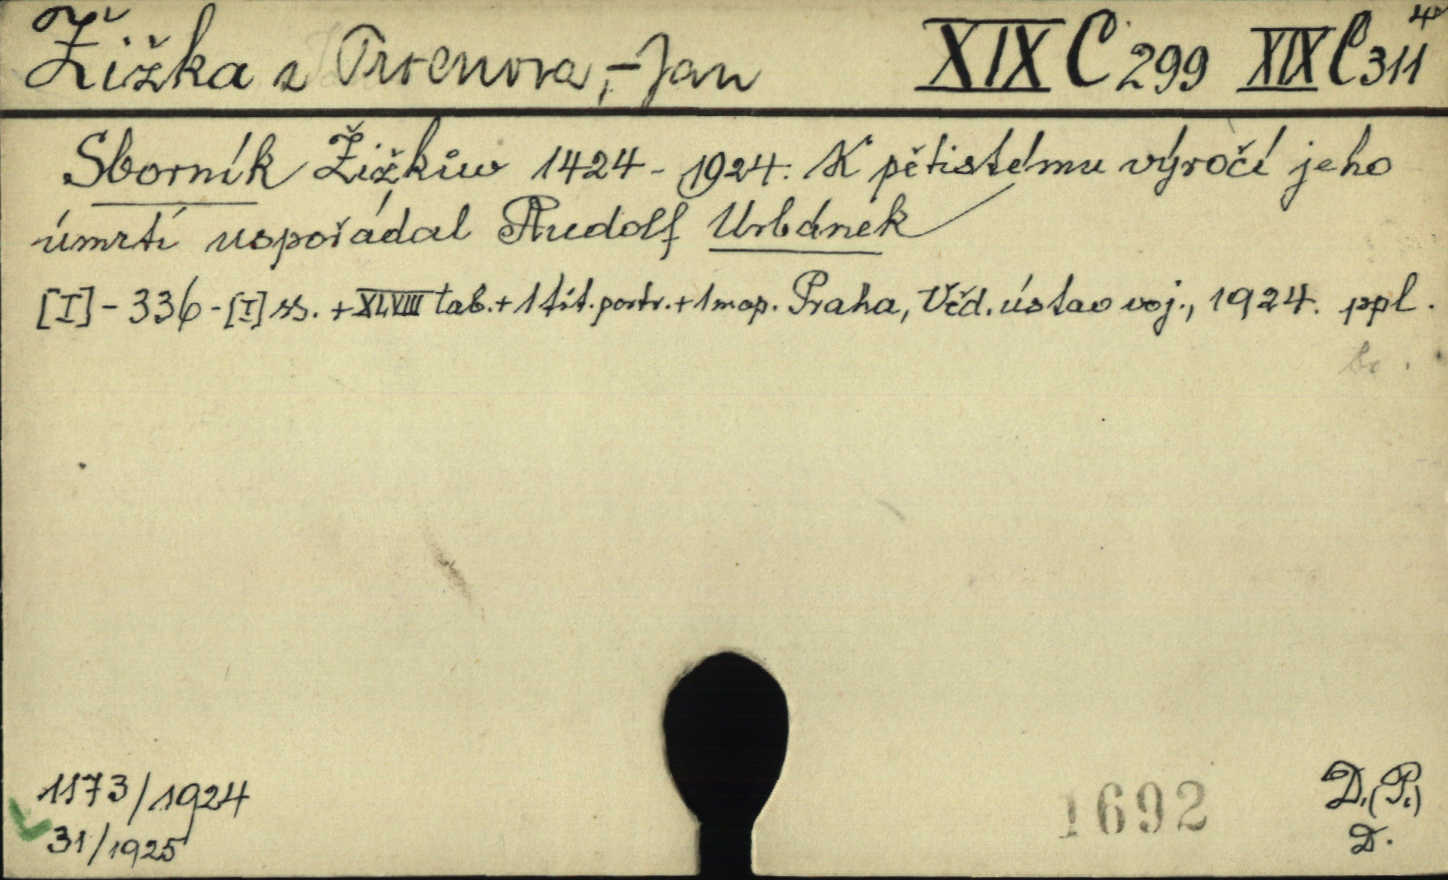 Žižka z Trocnova, Jan XIX C 299 XIX C 311 4°
Sborník Žižkův 1424-1924. K pětistému výročí jeho
úmrtí uspořádal Rudolf Urbánek
[I]-336-[I] ss. + XLVIII tab. + 1 tit. portr. + 1 map. Praha, Věd. ústav voj., 1924. ppl.
br.
1173/1924
31/1925
1692
D. (P.)
D.